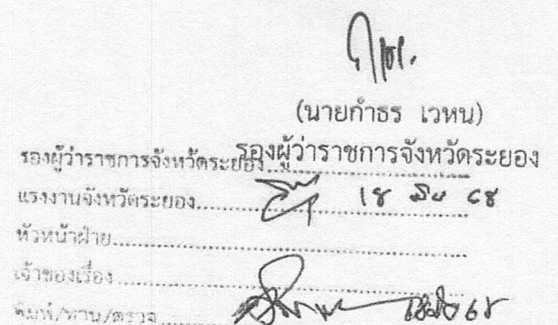 (นายกำธร เวหน)
รองผู้ว่าราชการจังหวัดระยอง
รองผู้ว่าราชการจังหวัดระยอง
แรงงานจังหวัดระยอง.......... ๑๘ มิย ๖๘
หัวหน้าฝ่าย..........
เจ้าของเรื่อง..........
พิมพ์/ทาน/ตรวจ..........